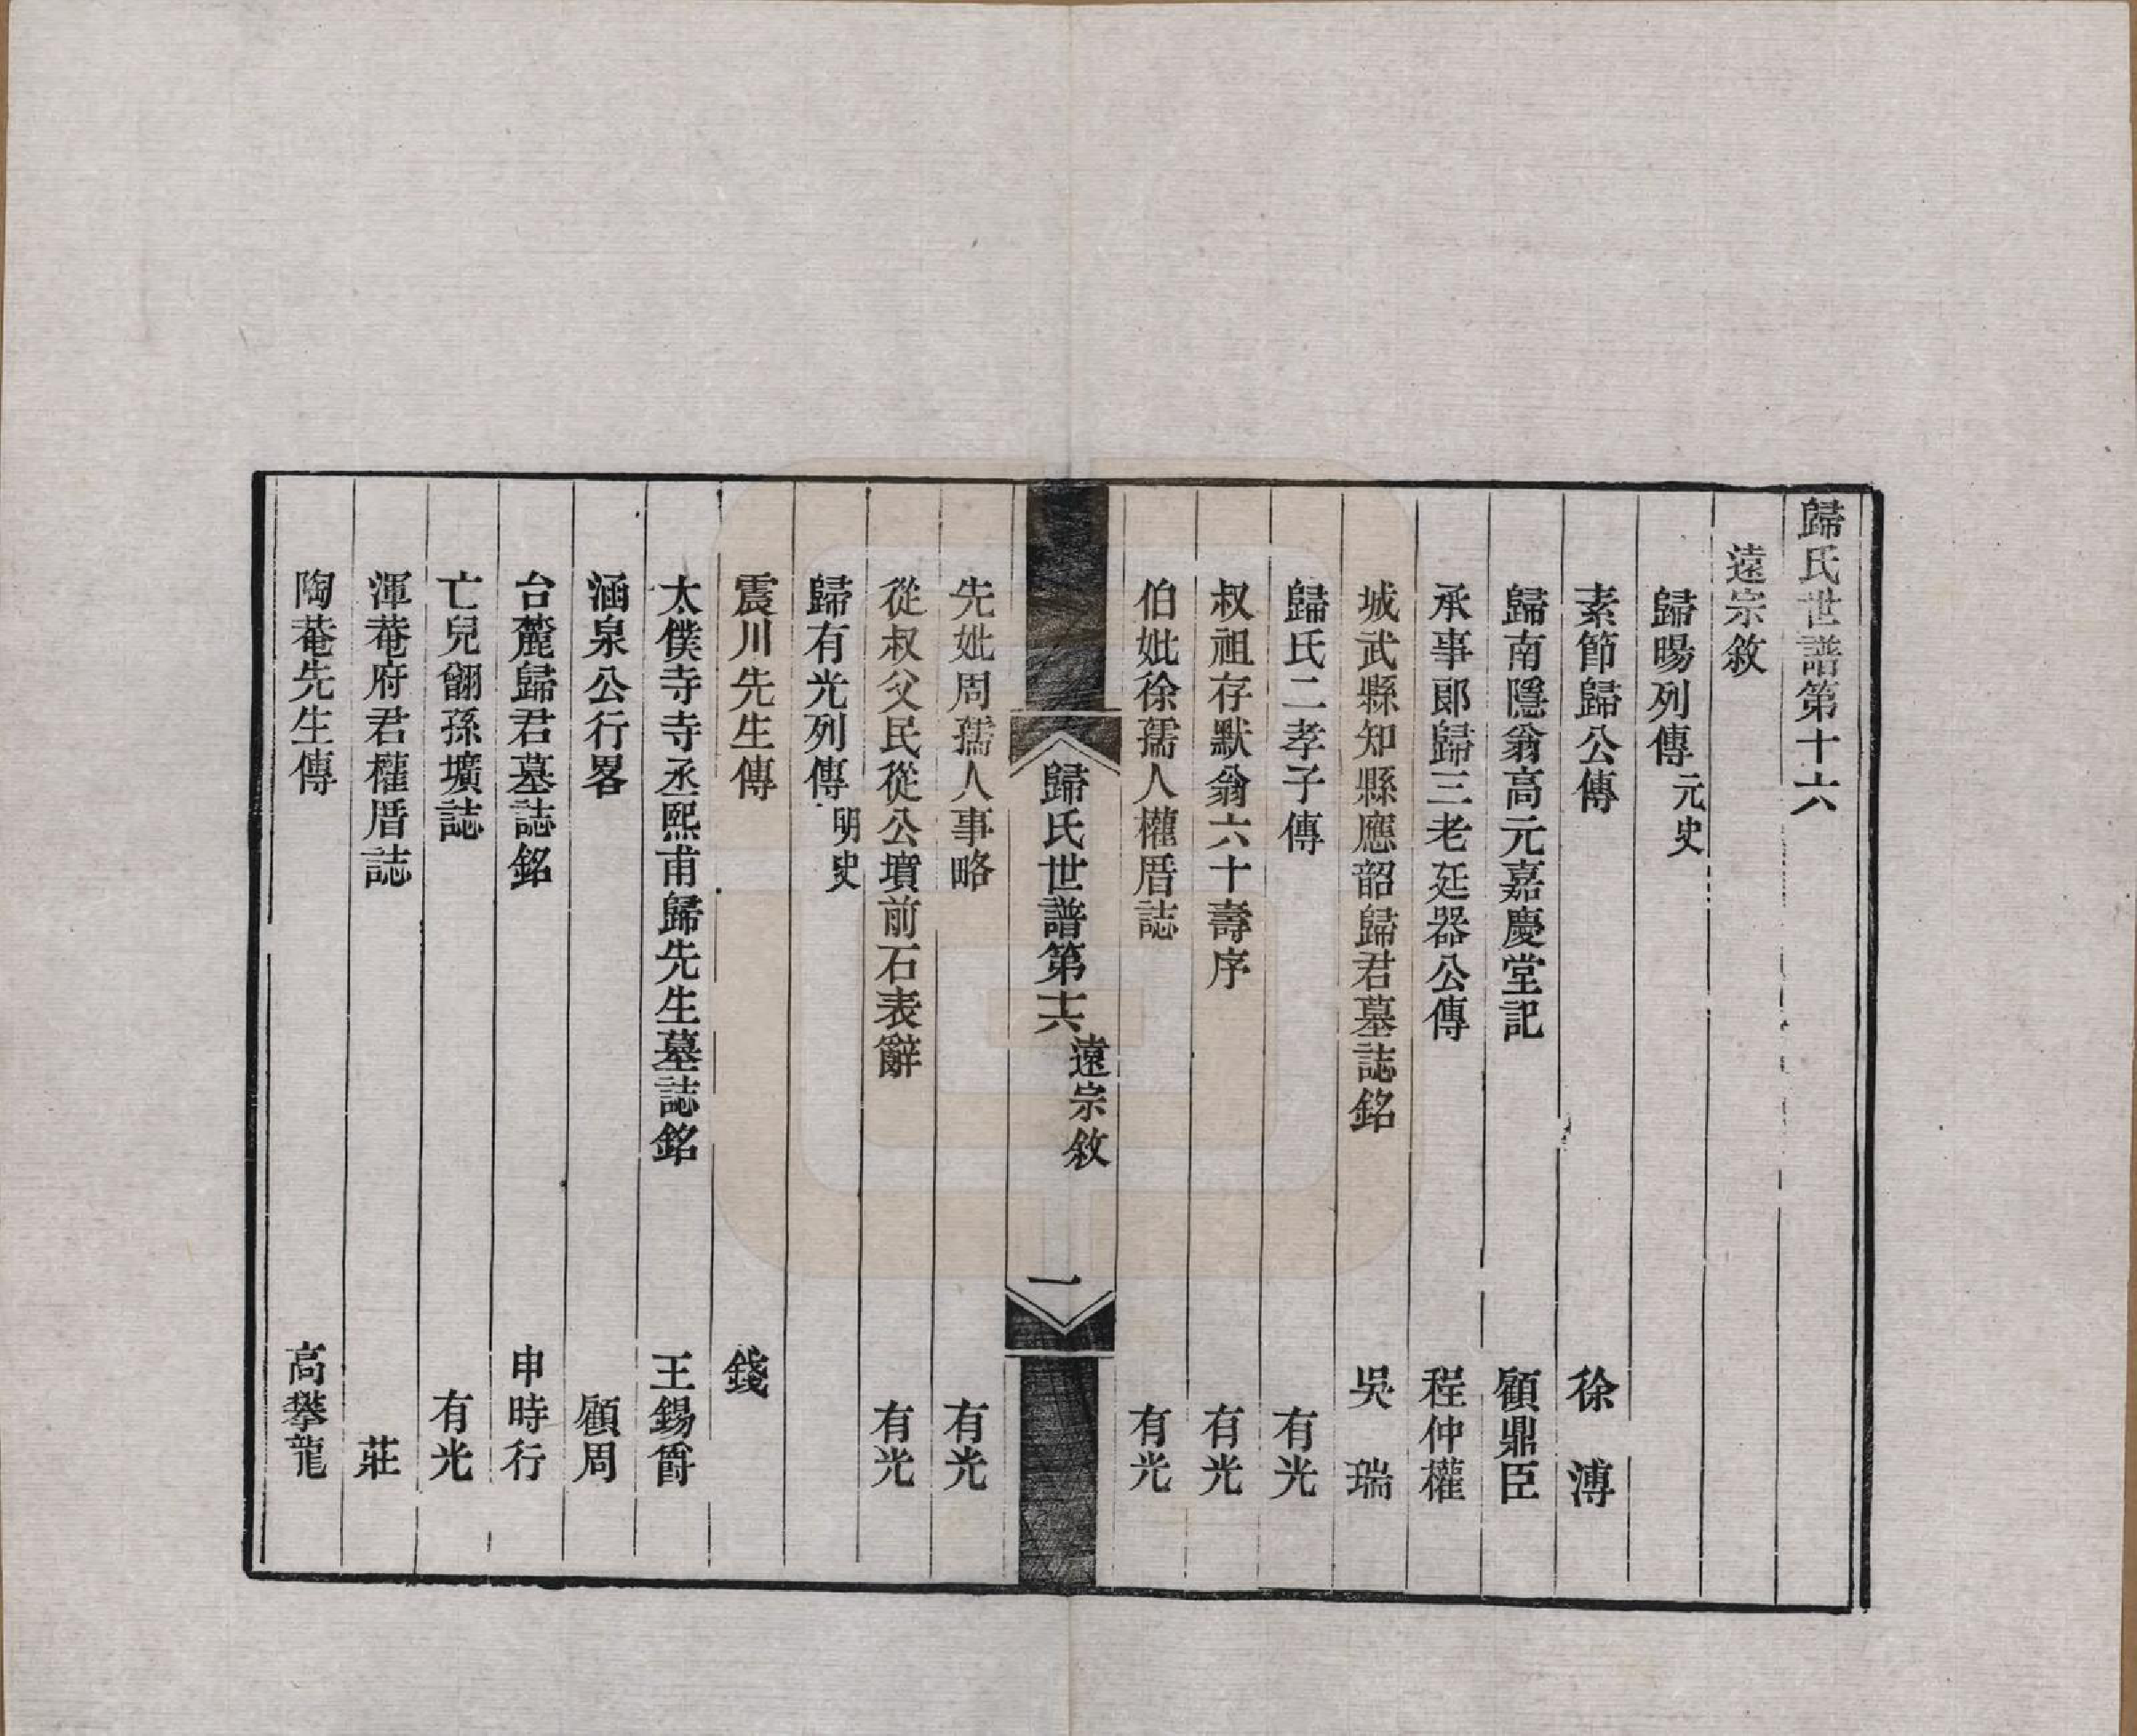 歸氏世譜第十六
遠宗敘
歸暘列傳 元史
素節歸公傳 徐 溥
歸南隱翁高元嘉慶堂記 顧鼎臣
承事郎歸三老廷器公傳 程仲權
城武縣知縣應韶歸君墓誌銘 吳 瑞
歸氏二孝子傳 有光
叔祖存默翁六十壽序 有光
伯妣徐孺人權厝誌 有光
歸氏世譜第十六 遠宗敘 一
先妣周孺人事略 有光
從叔父民從公墳前石表辭 有光
歸有光列傳 明史
震川先生傳 錢
太僕寺寺丞熙甫歸先生墓誌銘 王錫爵
涵泉公行畧 顧周
台麓歸君墓誌銘 申時行
亡兒𦒍孫壙誌 有光
渾菴府君權厝誌 莊
陶菴先生傳 高攀龍